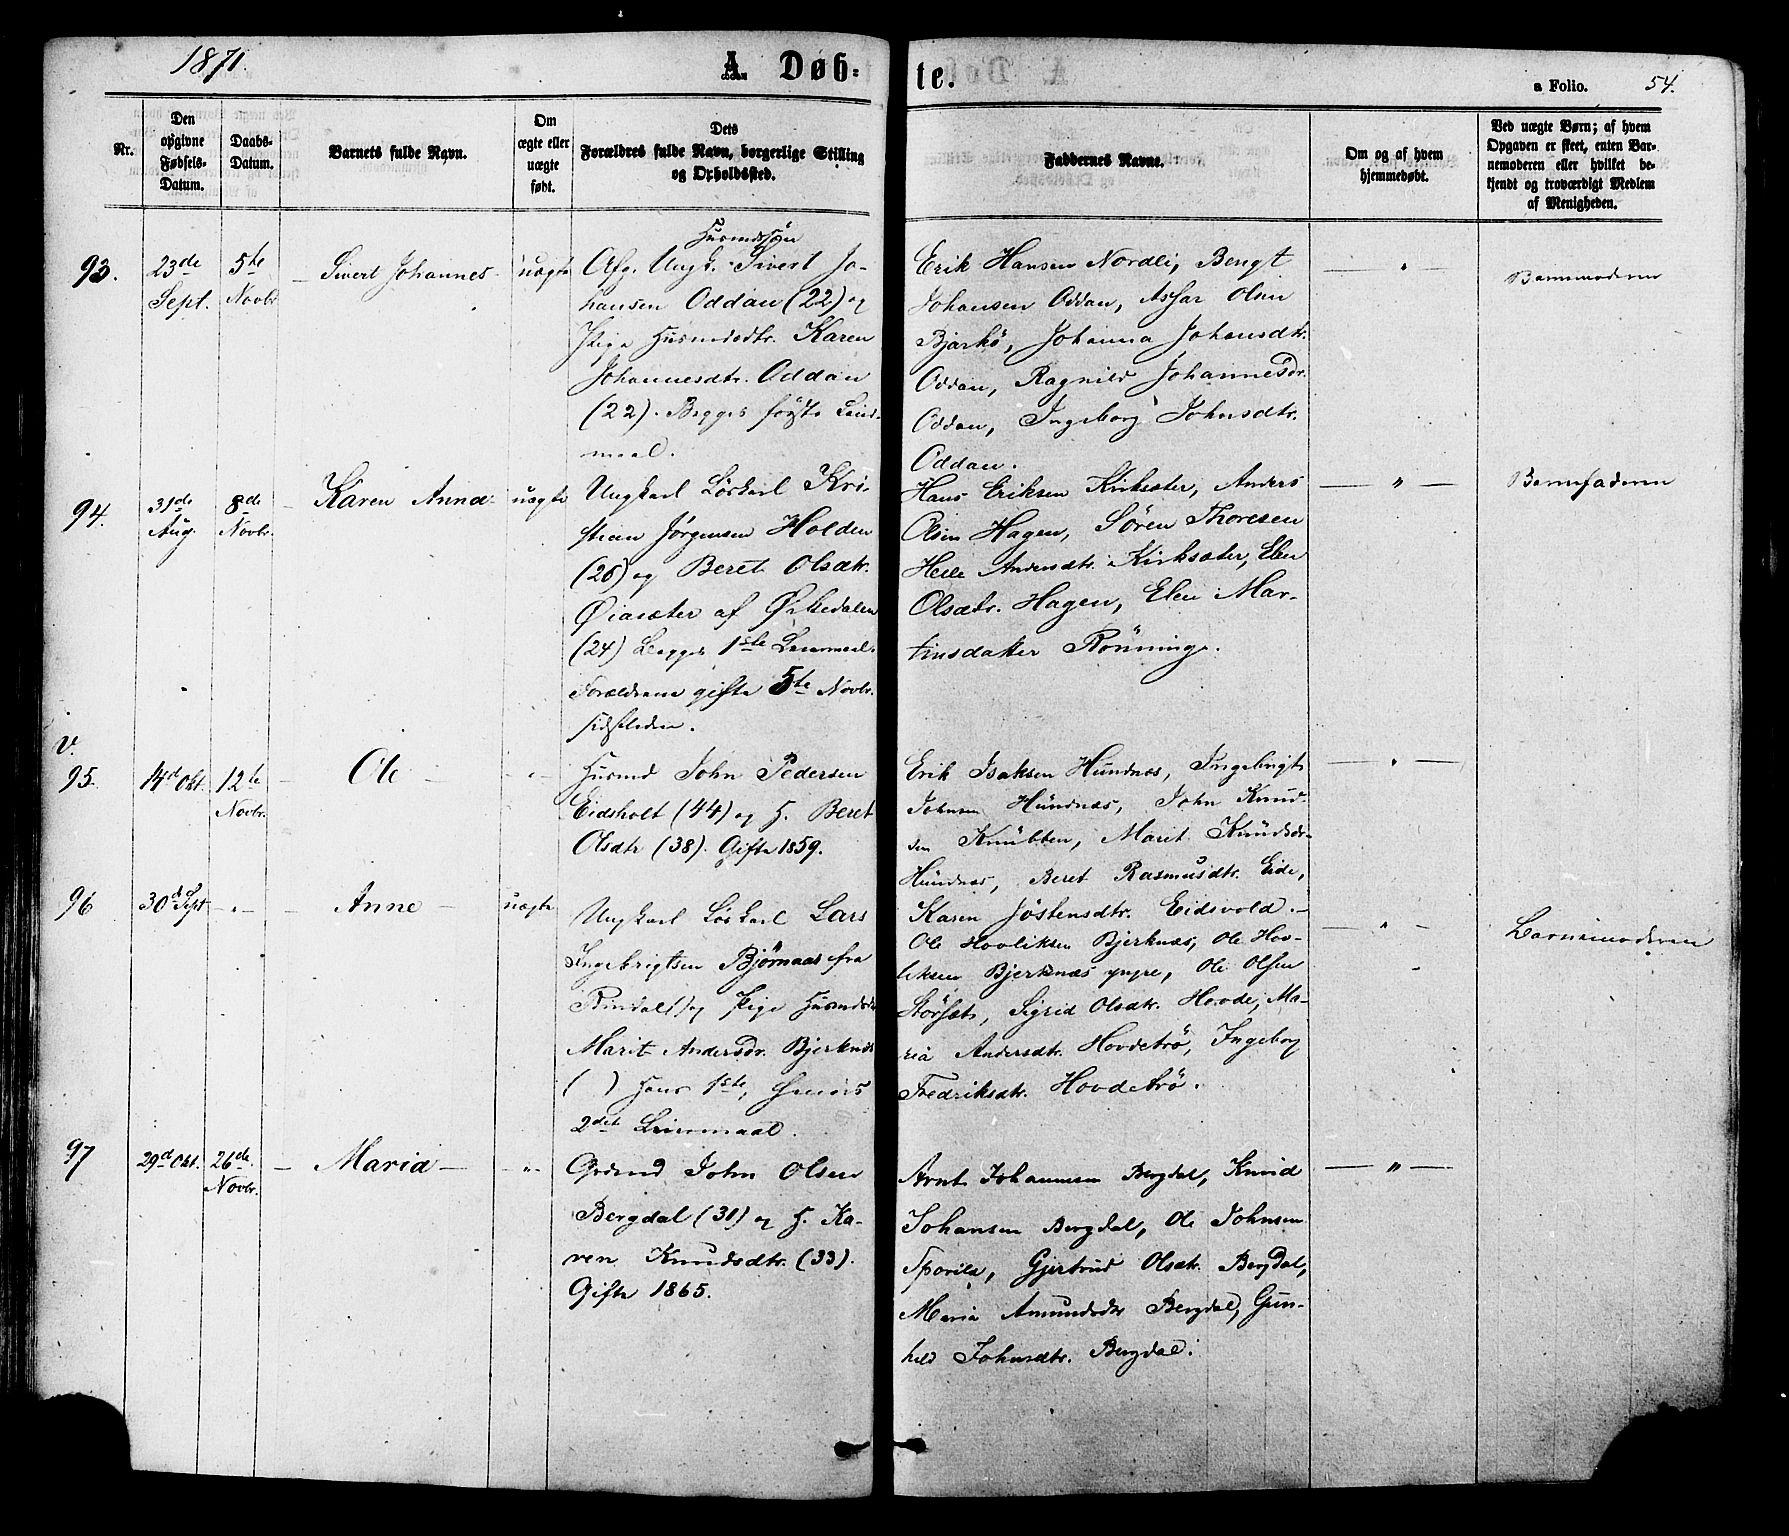 1871.
A. Døb-
te.
a Folio.
54.
Nr.
Den
opgivne
Fødsels-
Datum.
Daabs-
Datum.
Barnets fulde Navn.
Om
ægte eller
uægte
født.
Dets
Forældres fulde Navn, borgerlige Stilling
og Opholdssted.
Faddernes Navne.
Om og af hvem
hjemmedøbt.
Ved uægte Børn; af hvem
Opgaven er skeet, enten Bar-
nemoderen eller hvilket be-
kjendt og troværdigt Medlem
af Menigheden.
93.
23de
Sept.
5te
Novbr
Sivert Johannes
uægte
Husmdsøn
Afg. Ungk. Sivert Jo-
hansen Oddan (22) og
Pige Husmdsdtr. Karen
Johannesdtr. Oddan
(22). Begges første Leier-
maal.
Erik Hansen Nordli, Bengt
Johansen Oddan, Olsen
Bjørkø, Johanna Johansdtr.
Oddan, Ragnild Johannesdr.
Oddan, Ingeborg Johnsdtr.
Oddan.
"
Barnemoderen
94.
31de
Aug.
8de
Novbr.
Karen Anna
uægte
Ungkarl Løskarl Kri-
stian Jørgensen Holden
(26) og Beret Olsdtr.
Øiasæter af Ørkedalen
(24) Begges 1ste Leiermaal.
Forældrene gifte 5te Novbr.
sidstleden.
Hans Eriksen Kirksæter, Anders
Olsen Hagen, Søren Thoresen
Andersdtr. Kirksæter, Elen
Olsdtr. Hagen, Elen Mar-
tinsdatter Rønninge.
"
Barnefaderen
V.
95.
14d Okt.
12te
Novbr.
Ole
"
Husmd John Pedersen
Eidsholt (44) og H. Beret
Olsdtr (38). Gifte 1859.
Erik Isaksen Hundnæs, Ingebrigt
Johnsen Hundnæs, John Knud-
sen Knubben, Marit Knudsdr
Hundnæs, Beret Rasmusdtr. Eide,
Karen Jøstensdtr. Eidsvold.
"
96
30d Sept
"
Anne
uægte
Ungkarl Løskarl Lars
Ingebrigtsen Bjørnaas fra
Rindal() og Pige Husmdsdr
Marit Andersdr. Bjerknæs
( ) Hans 1ste, Hendes
2det Leiermaal.
Ole Hovliksen Bjerknæs, Ole Hov-
liksen Bjerknæs yngre, Ole Olsen
Størset, Sigrid Olsdtr. Hovde, Ma-
ria Andersdtr. Hovdetrø, Ingeborg
Fredriksdtr. Hovdetrø.
"
Barnemoderen
97
29d Okt.
26de
Novbr.
Maria
"
Grdmd John Olsen
Bergdal (31) og H. Ka-
ren Knudsdtr. (33).
Gifte 1865.
Arnt Johannesen Bergdal, Knud
Johansen Bergdal, Ole Johnsen
Sporild, Gjertrud Olsdtr. Bergdal,
Maria Amundsdtr Bergdal, Gun-
hild Johnsdtr. Bergdal.
"